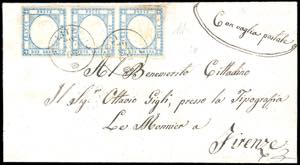 Con vaglia postale
Al Benemerito Cittadino
Il Sigr. Ottavio Gigli, presso la Tipografia
Le Monnier a
Firenze